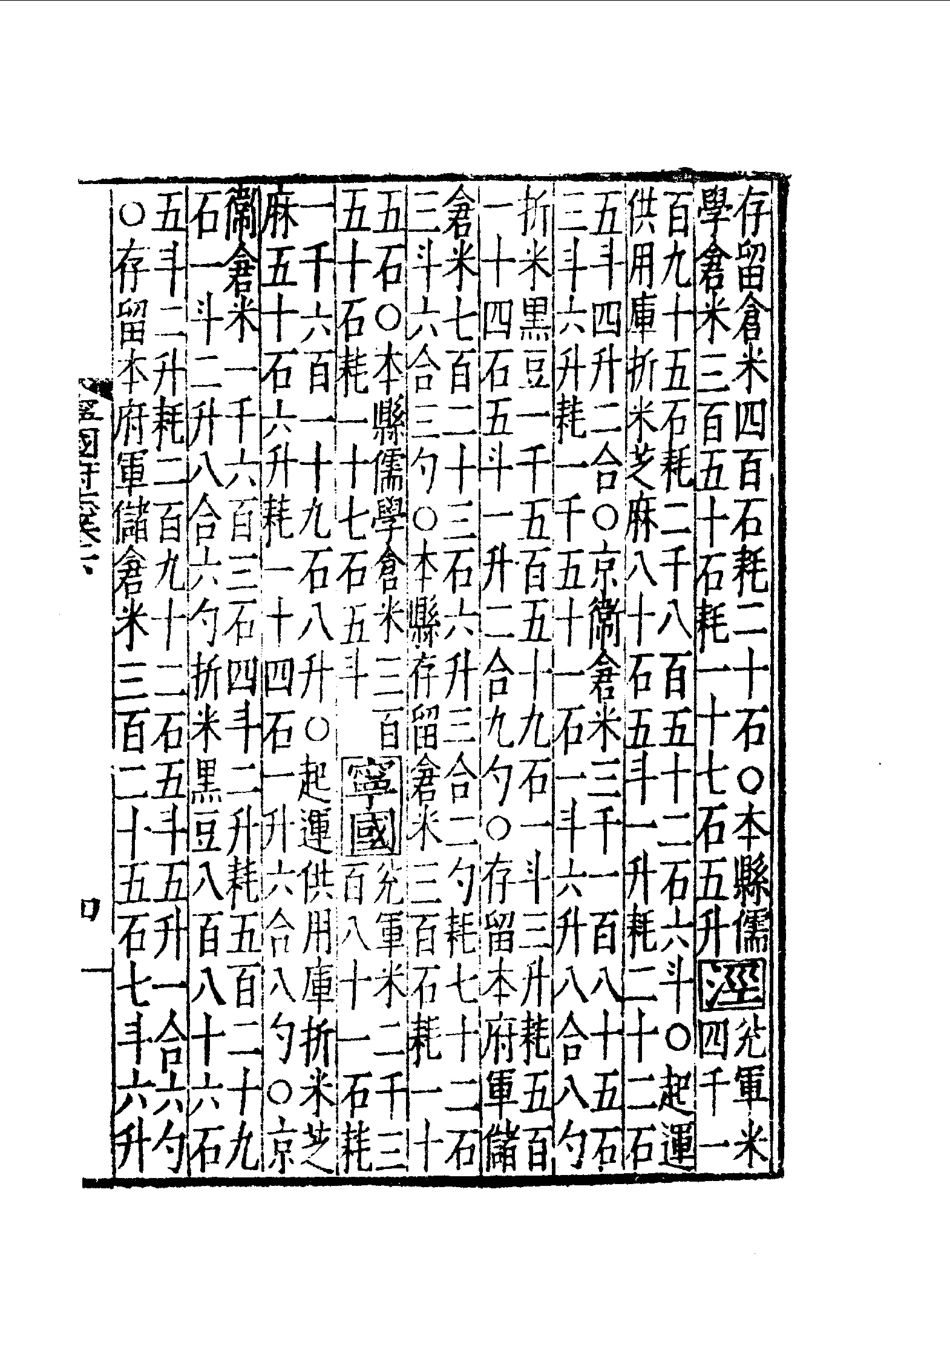 存留倉米四百石耗二十石○本縣儒
學倉米三百五十石耗一十七石五升
涇
兊軍米
四千一
百九十五石耗二千八百五十二石六斗○起運
供用庫折米芝麻八十石五斗一升耗二十二石
五斗四升二合○京衛倉米三千一百八十五石
三斗六升耗一千五十一石一斗六升八合八勺
折米黑豆一千五百五十九石一斗三升耗五百
一十四石五斗一升二合九勺○存留本府軍儲
倉米七百二十三石六升三合二勺耗七十二石
三斗六合三勺○本縣存留倉米三百石耗一十
五石○本縣儒學倉米三百
五十石耗一十七石五斗
寧國
兊軍米二千三
百八十一石耗
一千六百一十九石八升○起運供用庫折米芝
麻五十石六升耗一十四石一升六合八勺○京
衛倉米一千六百三石四斗二升耗五百二十九
石一斗二升八合六勺折米黑豆八百八十六石
五斗二升耗二百九十二石五斗五升一合六勺
○存留本府軍儲倉米三百二十五石七斗六升
寧國府志卷六